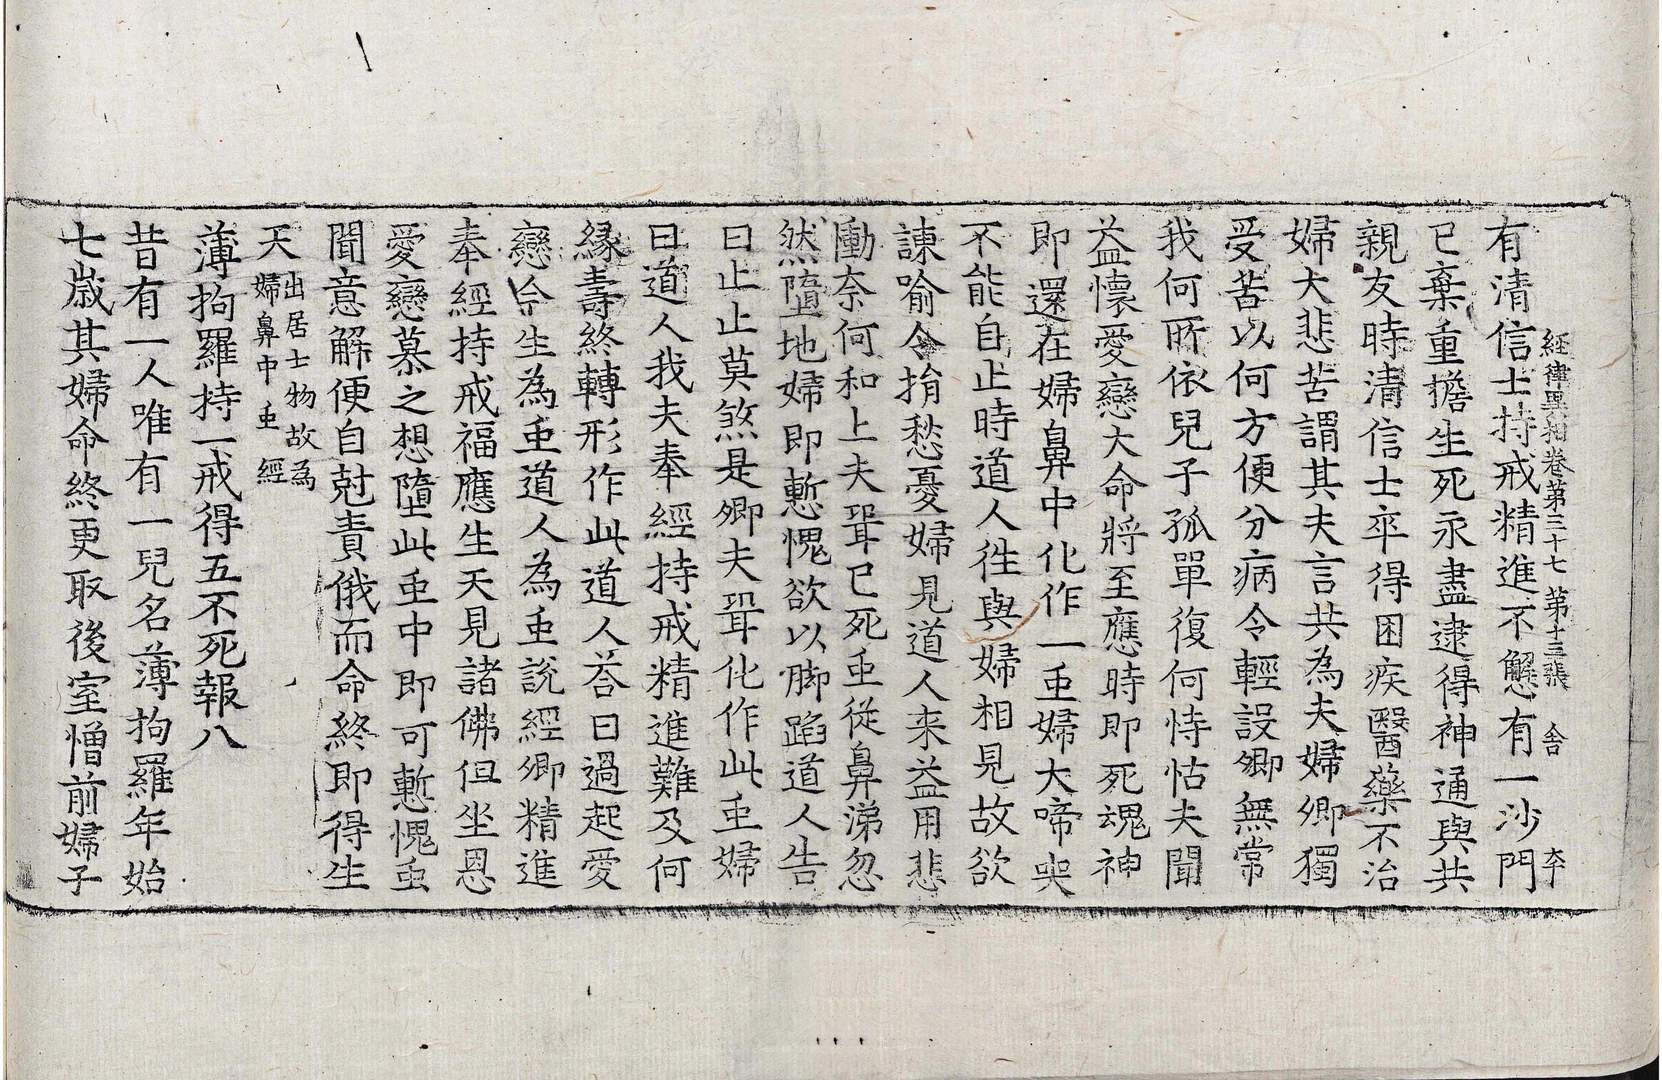 經律異相卷第三十七 第十三張 舎 夲
有清信士持戒精進不懈有一沙門
已棄重擔生死永盡逮得神通與共
親友時清信士卒得困疾醫藥不治
婦大悲苦謂其夫言共為夫婦卿獨
受苦以何方便分病令輕設卿無常
我何所依兒子孤單復何恃怙夫聞
益懷愛戀大命將至應時即死魂神
即還在婦鼻中化作一䖝婦大啼哭
不能自止時道人徃與婦相見故欲
諫喻令捐愁憂婦見道人来益用悲
慟奈何和上夫聟已死䖝從鼻涕忽
然墮地婦即慙愧欲以脚蹈道人告
曰止止莫煞是卿夫聟化作此䖝婦
曰道人我夫奉經持戒精進難及何
縁壽終轉形作此道人荅曰過起愛
戀今生為䖝道人為䖝說經卿精進
奉經持戒福應生天見諸佛但坐恩
愛戀慕之想墮此䖝中即可慙愧䖝
聞意解便自尅責俄而命終即得生
天 出居士物故為婦鼻中䖝經
薄拘羅持一戒得五不死報八
昔有一人唯有一兒名薄拘羅年始
七歲其婦命終更取後室憎前婦子